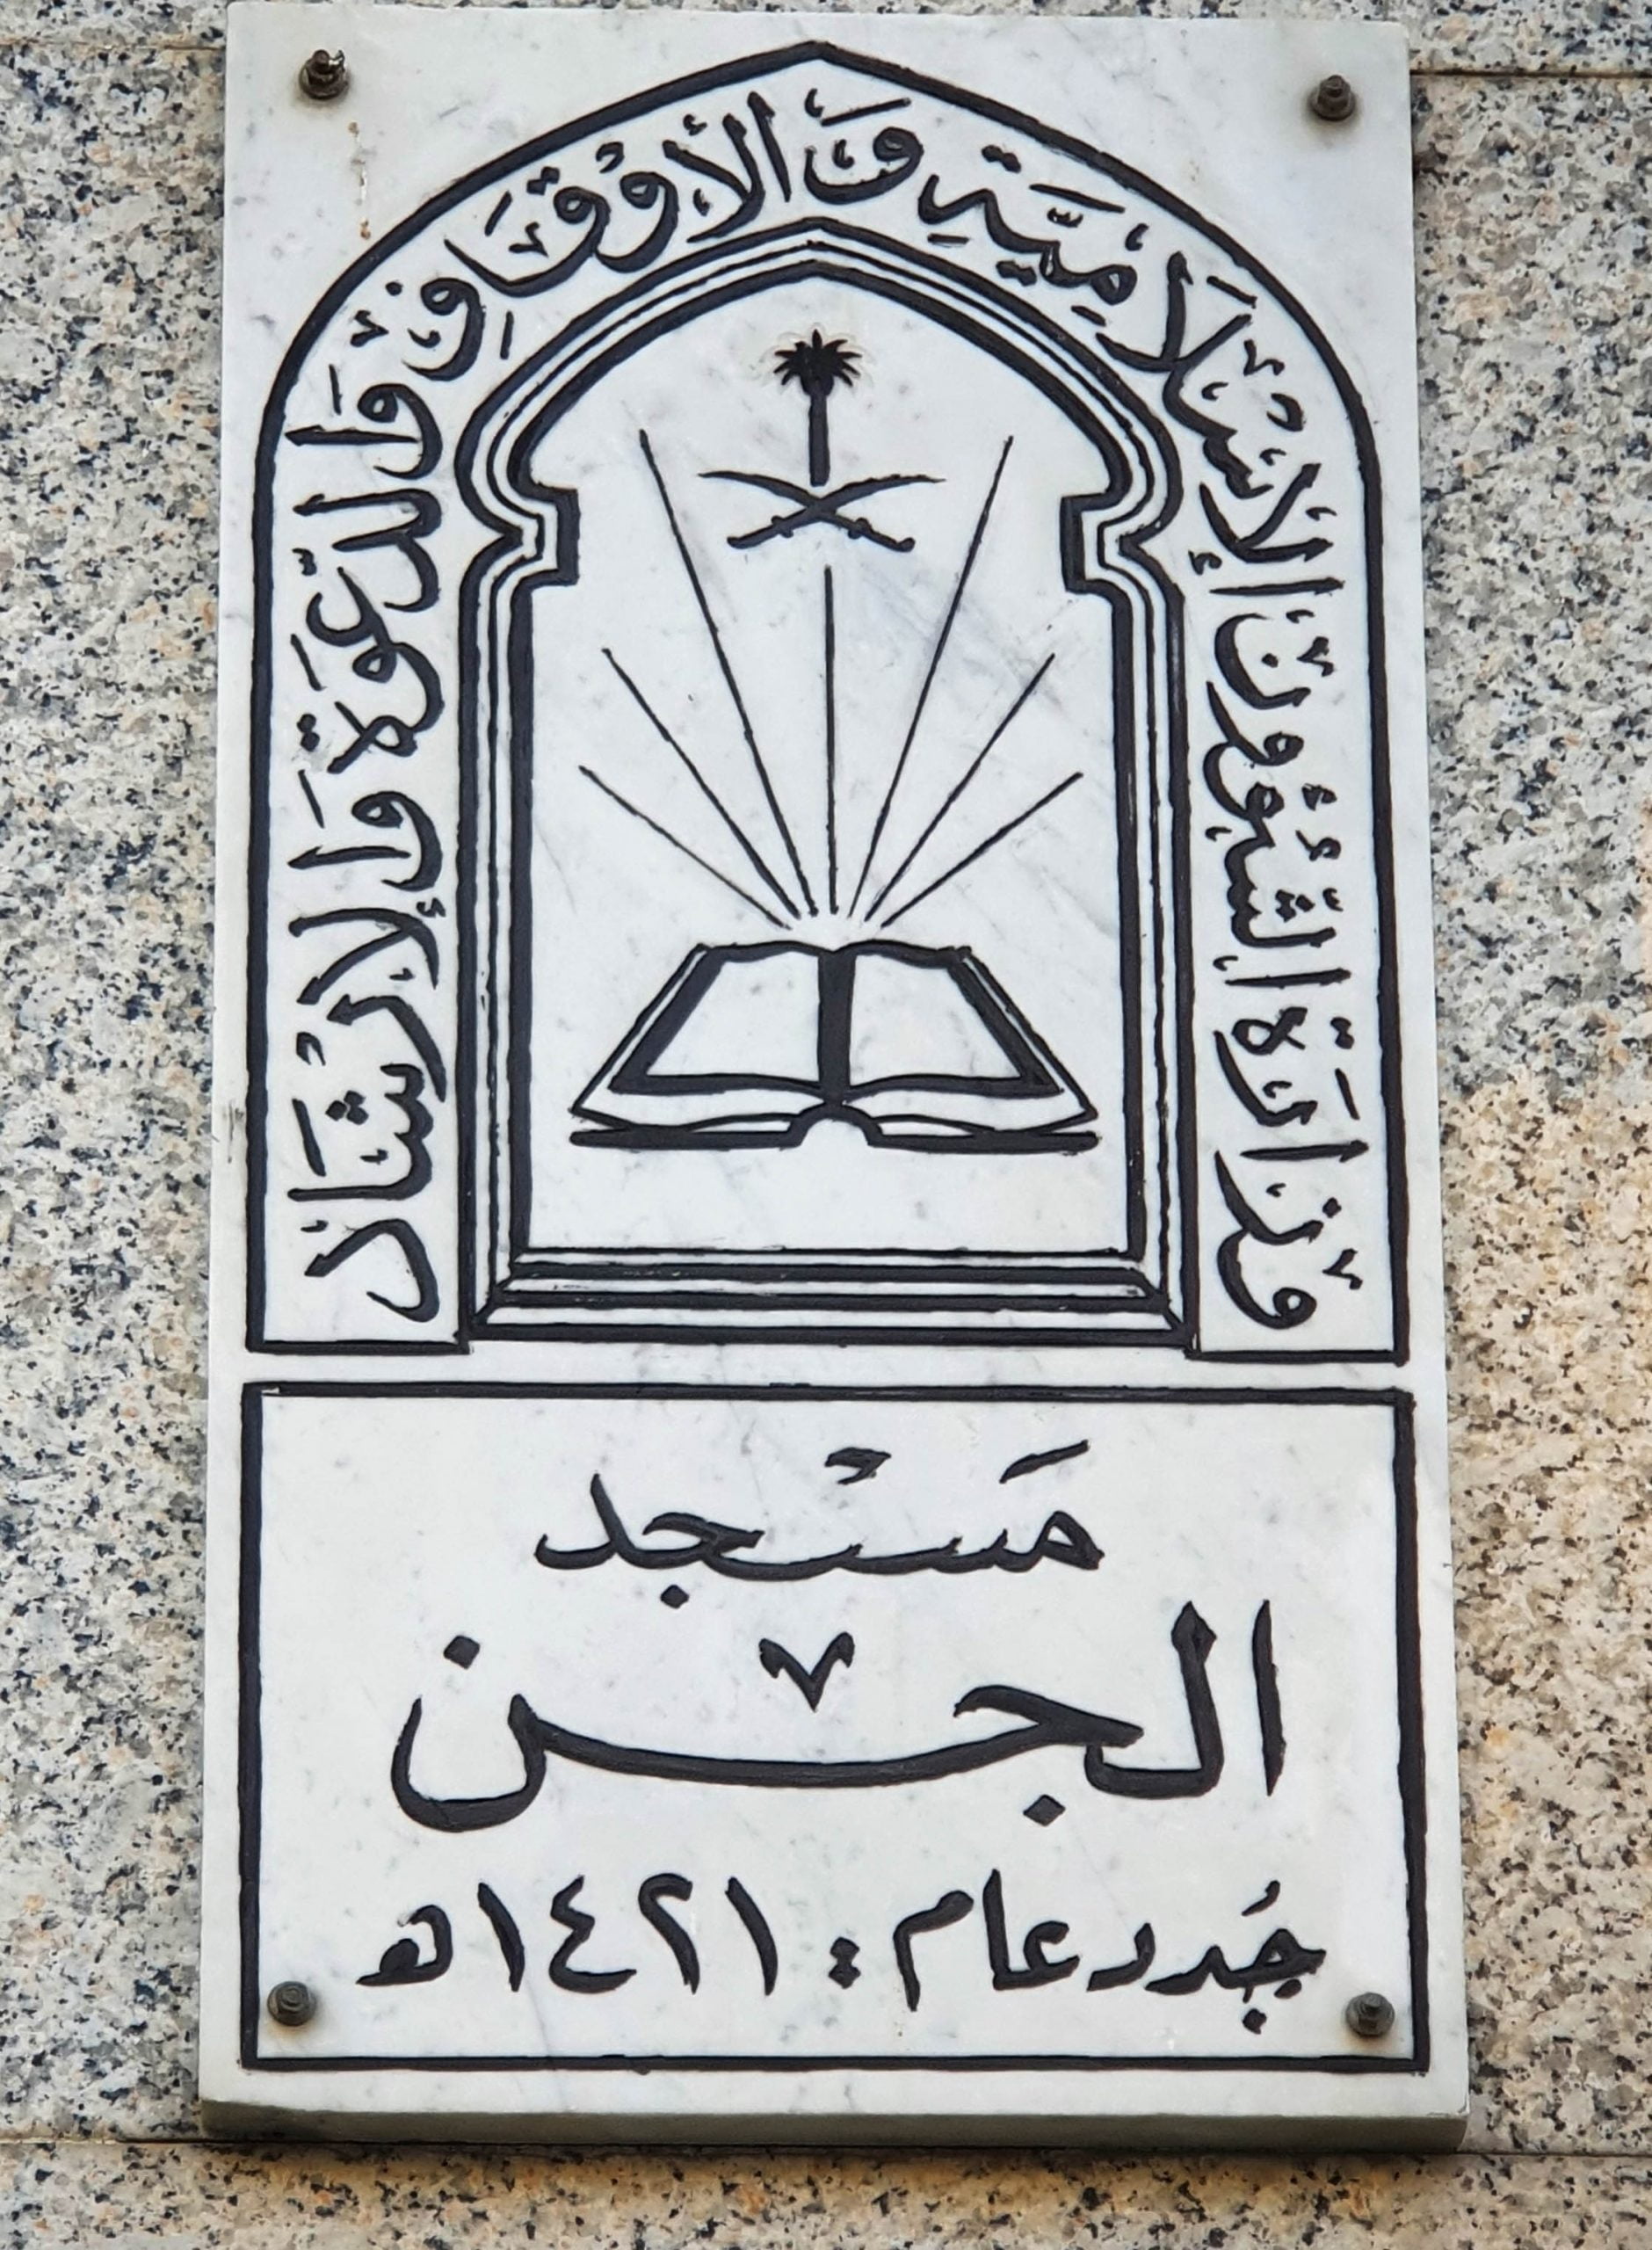 وَزَارَة الشُّؤُون الإِسْلَامِيَّة وَالأَوْقَاف وَالدَّعْوَة وَالإِرْشَاد
مَسْجد
الجن
جُدد عام : ١٤٢١هـ